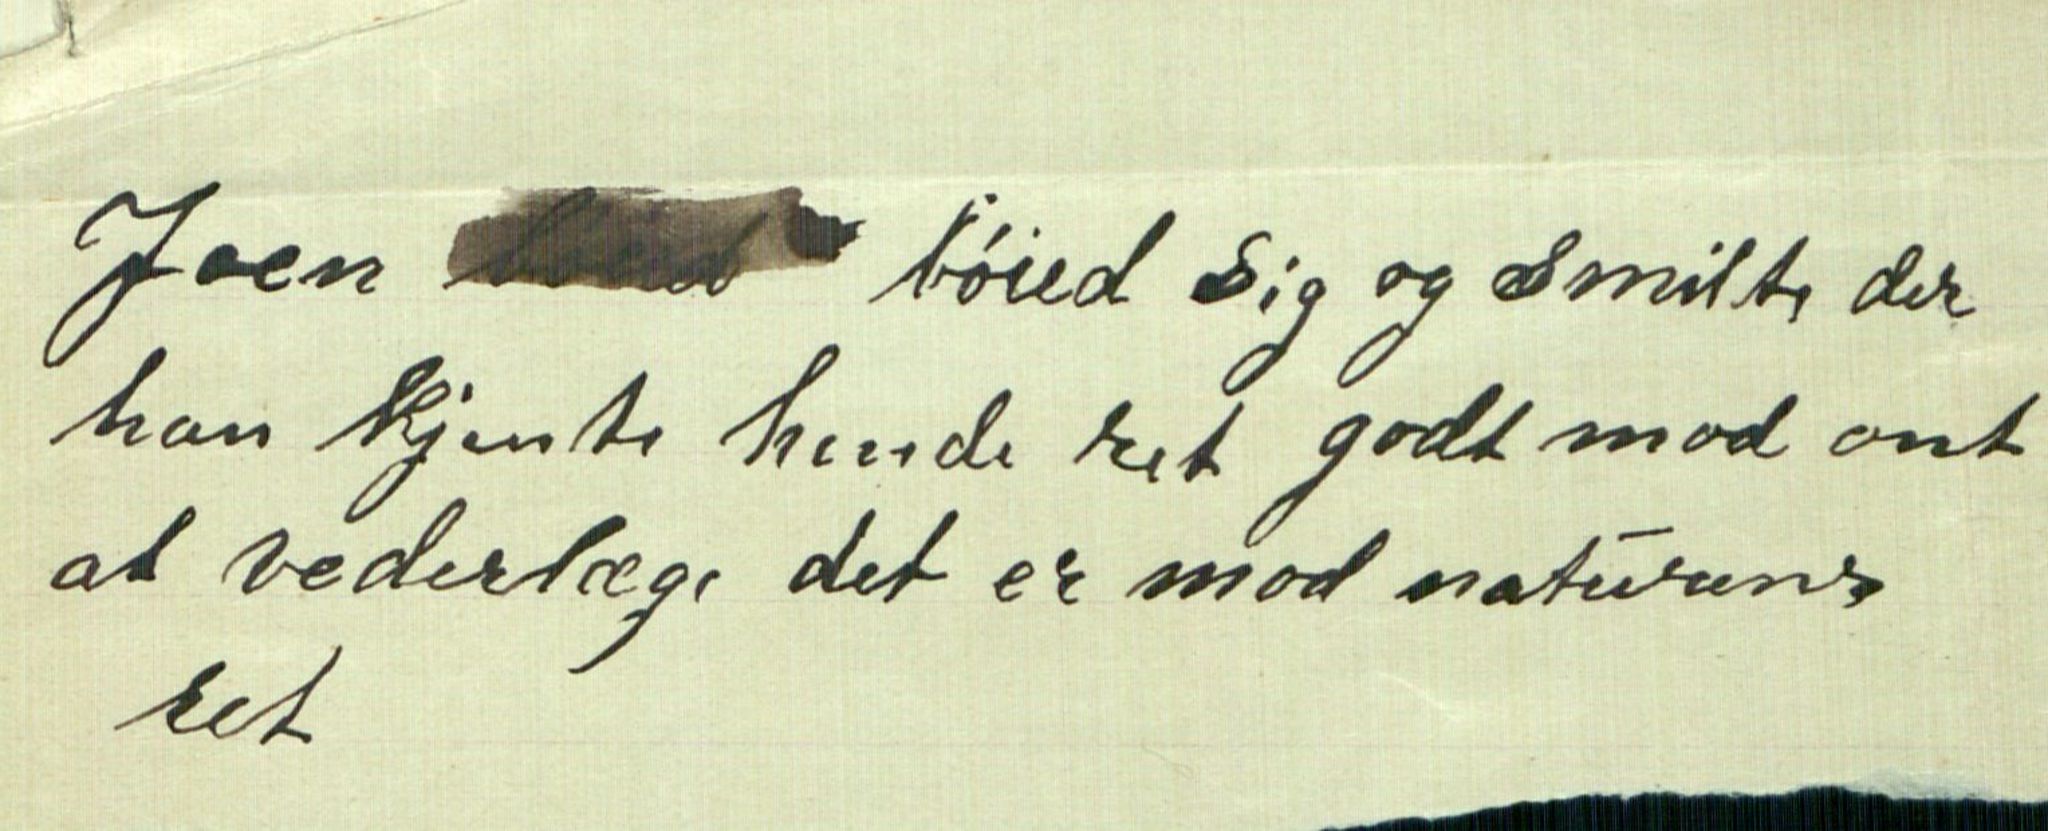 Joen bøied sig og smilte der
han kjente hende ret godt mod ont
at vederlæge det er mod naturens
ret